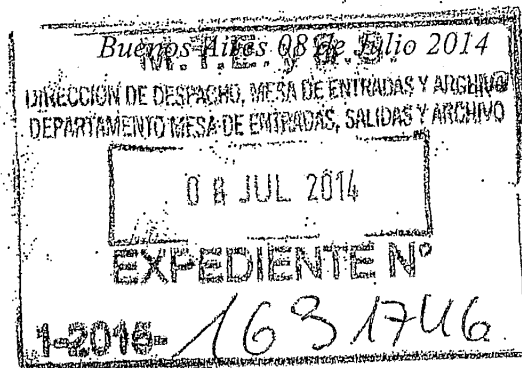 Buenos Aires 08 de Julio 2014
M.T.E. y S.S.
DIRECCIÓN DE DESPACHO, MESA DE ENTRADAS Y ARCHIVO
DEPARTAMENTO MESA DE ENTRADAS, SALIDAS Y ARCHIVO
08 JUL 2014
EXPEDIENTE Nº
1-2015- 1631746